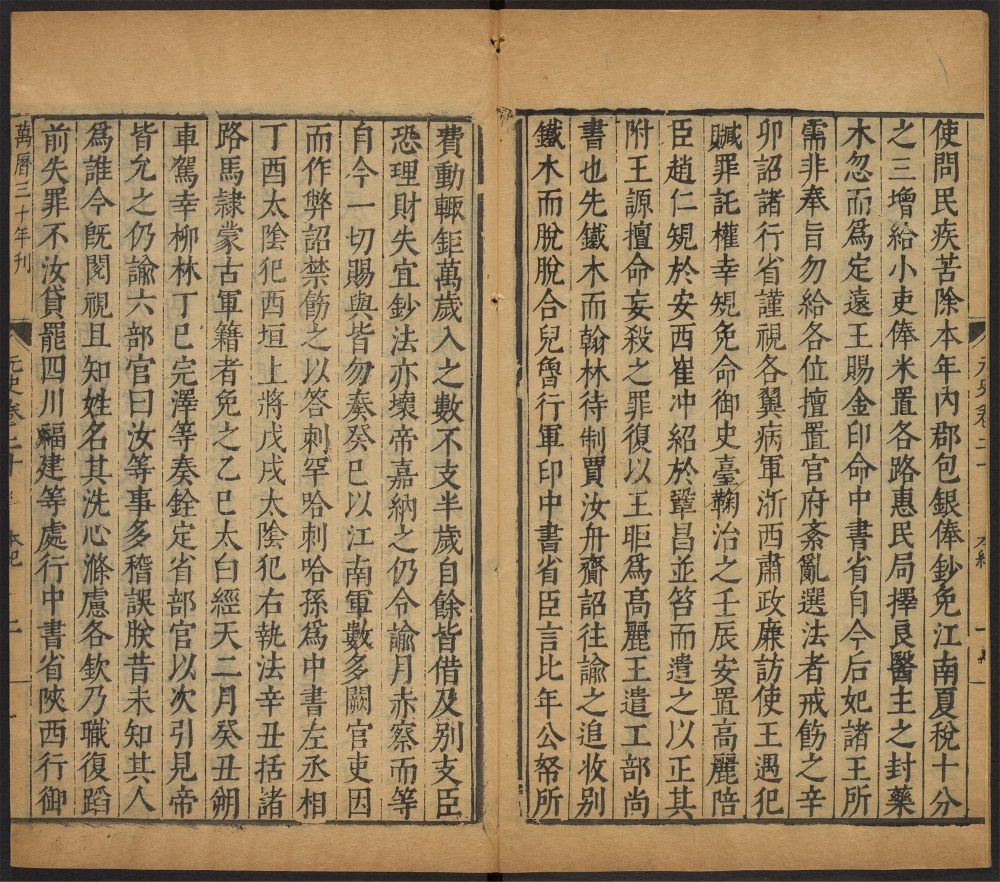 使問民疾苦除本年內郡包銀俸鈔免江南夏稅十分
之三增給小吏俸米置各路惠民局擇良醫主之封藥
木忽而爲定遠王賜金印命中書省自今后妃諸王所
需非奉旨勿給各位擅置官府紊亂選法者戒飭之辛
卯詔諸行省謹視各翼病軍浙西肅政廉訪使王遇犯
贓罪託權幸規免命御史臺鞠治之壬辰安置高麗陪
臣趙仁規於安西崔冲紹於鞏昌並笞而遣之以正其
附王謜擅命妄殺之罪復以王昛爲高麗王遣工部尚
書也先鐵木而翰林待制賈汝舟齎詔往諭之追收別
鐵木而脫脫合兒魯行軍印中書省臣言比年公帑所
費動輒鉅萬歲入之數不支半歲自餘皆借及別支臣
恐理財失宜鈔法亦壞帝嘉納之仍令諭月赤察而等
自今一切賜與皆勿奏癸巳以江南軍數多闕官吏因
而作弊詔禁飭之以答刺罕哈刺哈孫爲中書左丞相
丁酉太陰犯西垣上將戊戌太陰犯右執法辛丑括諸
路馬隷蒙古軍籍者免之乙巳太白經天二月癸丑朔
車駕幸柳林丁巳完澤等奏銓定省部官以次引見帝
皆允之仍諭六部官曰汝等事多稽誤朕昔未知其人
爲誰今旣閱視且知姓名其洗心滌慮各欽乃職復蹈
前失罪不汝貸罷四川福建等處行中書省陝西行御
萬曆三十年刊
元史卷二十
本紀
二